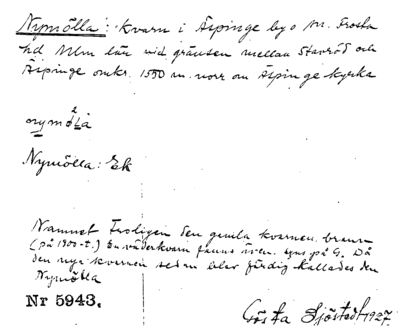 Nymölla: Kvarn i Äspinge by o sn. Frosta
hd Mlm län vid gränsen mellan Stavröd och
Äspinge omkr. 1550 m. norr om Äspinge kyrka
nymöla
Nymölla: Ek
Namnet Troligen den gamla kvarnen brann
(på 1900-t.) En väderkvarn fanns även. syns på G. Då
den nya kvarnen sedan blev färdig kallades den
Nymölla
Nr 5943.
Gösta Sjöstedt 1927